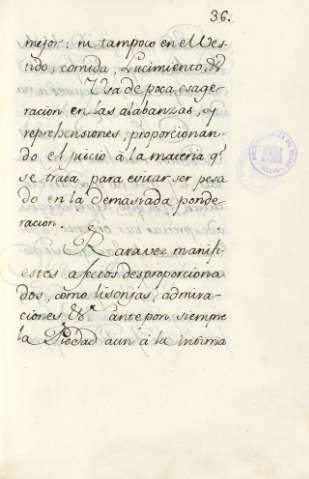 36.
mejor: ni tampoco en el Ves-
tido, comida, Lucimiento, &
Usa de poca exage-
racion en las alabanzas, y
reprehensiones, proporcionan-
do el juicio à la materia q.^e
se trata, para evitar ser pesa
do en la demasiada ponde-
racion.
Rara vez manifi-
estes afectos desproporciona-
dos, como lisonjas, admira-
ciones &.^a antepon siempre
la Piedad aun à la intima